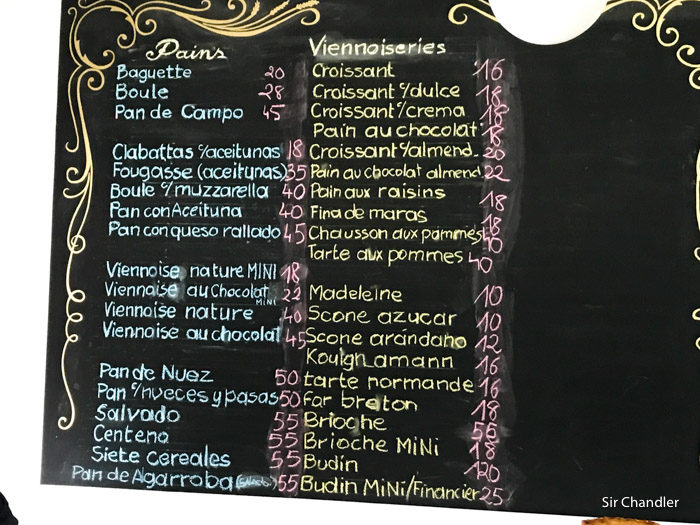 Pains
Baguette 20
Boule 28
Pan de Campo 45
Clabattas c/aceitunas 18
Fougasse (aceitunas) 35
Boule c/muzzarella 40
Pan con Aceituna 40
Pan con queso rallado 45
Viennoise nature MINI 18
Viennaise au Chocolat MINI 22
Viennaise nature 40
Viennaise au chocolat 45
Pan de Nuez 50
Pan c/nueces y pasas 50
Salvado 55
Centeno 55
Siete cereales 55
Pan de Algarroba 55
Viennoiseries
Croissant 16
Croissant c/dulce 18
Croissant c/crema 18
Pain au chocolat 18
Croissant c/almend. 20
Pain au chocolat almend. 22
Pain aux raisins 18
Fina de maras 18
Chausson aux pommes 40
Tarte aux pommes 40
Madeleine 10
Scone azucar 10
Scone arándano 12
Kouign amann 16
tarte normande 16
far breton 18
Brioche 56
Brioche MiNi 18
Budín 120
Budin MiNi/Financier 25
Sir Chandler